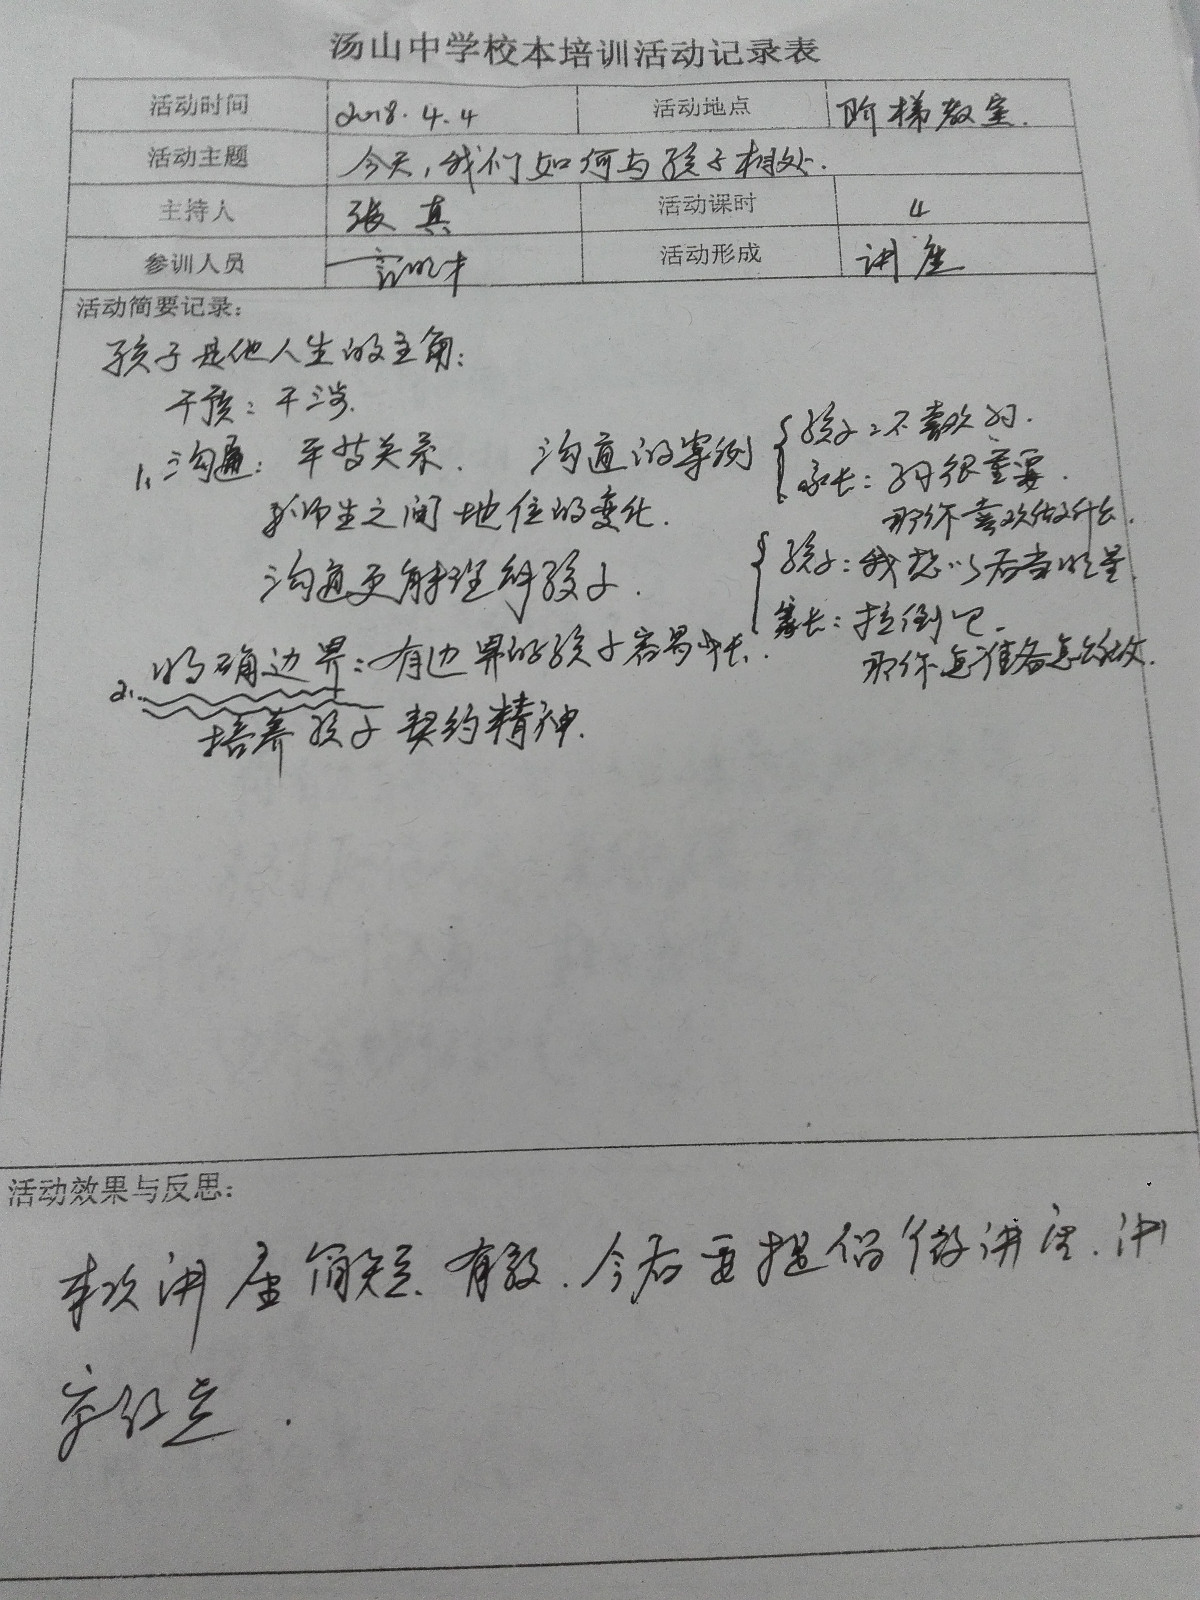 汤山中学校本培训活动记录表
活动时间 2018.4.4 活动地点 阶梯教室.
活动主题 今天,我们如何与孩子相处.
主持人 张真 活动课时 4
参训人员 活动形成 讲座
活动简要记录:
孩子是他人生的主角:
干预:干涉.
1、沟通:平等关系. 沟通的案例
孩子:不喜欢 .
家长: 很重要.
那你喜欢做什么.
师生之间地位的变化.
沟通更能理解孩子.
孩子:我想以后当明星.
家长:拉倒吧.
那你 准备怎么做.
2. 明确边界:有边界的孩子容易成长.
培养孩子契约精神.
活动效果与反思:
本次讲座简短、有效.今后要提倡微讲座.讲